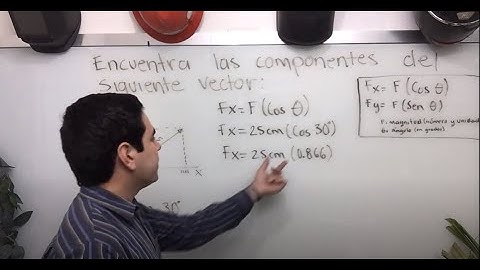 Encuentra las componentes del
siguiente vector:
Fx = F (Cos θ)
Fx = 25cm (Cos 30°)
Fx = 25cm (0.866)
Fx = F (Cos θ)
Fy = F (Sen θ)
F = magnitud (número y unidad)
θ = ángulo (en grados)
x
30°